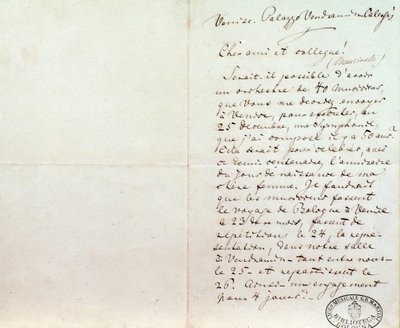 Venise. Palazzo Vendramin-Calergi
Cher ami et collègue!
(Mancinelli)
Serait-il possible d'avoir
un orchestre de 40 musiciens,
que vous me devrez envoyer
à Venise, pour exécuter, au
25 Décembre, une Symphonie,
que j'ai composé il y a 50 ans?
Cela serait pour célébrer, avec
ce demi centenaire, l'anniversaire
du jour de naissance de ma
chère femme. Il faudrait
que les musiciens fassent
le voyage de Bologne à Venise
le 23 de ce mois, fassent de
répétitions le 24, la repré-
sentation, dans notre salle
à Vendramin - tout entre nous -
le 25 - et repartissent le
26. Ainsi - un engagement
pour 4 jours? -
BIBLIOTECA
BOLOGNA